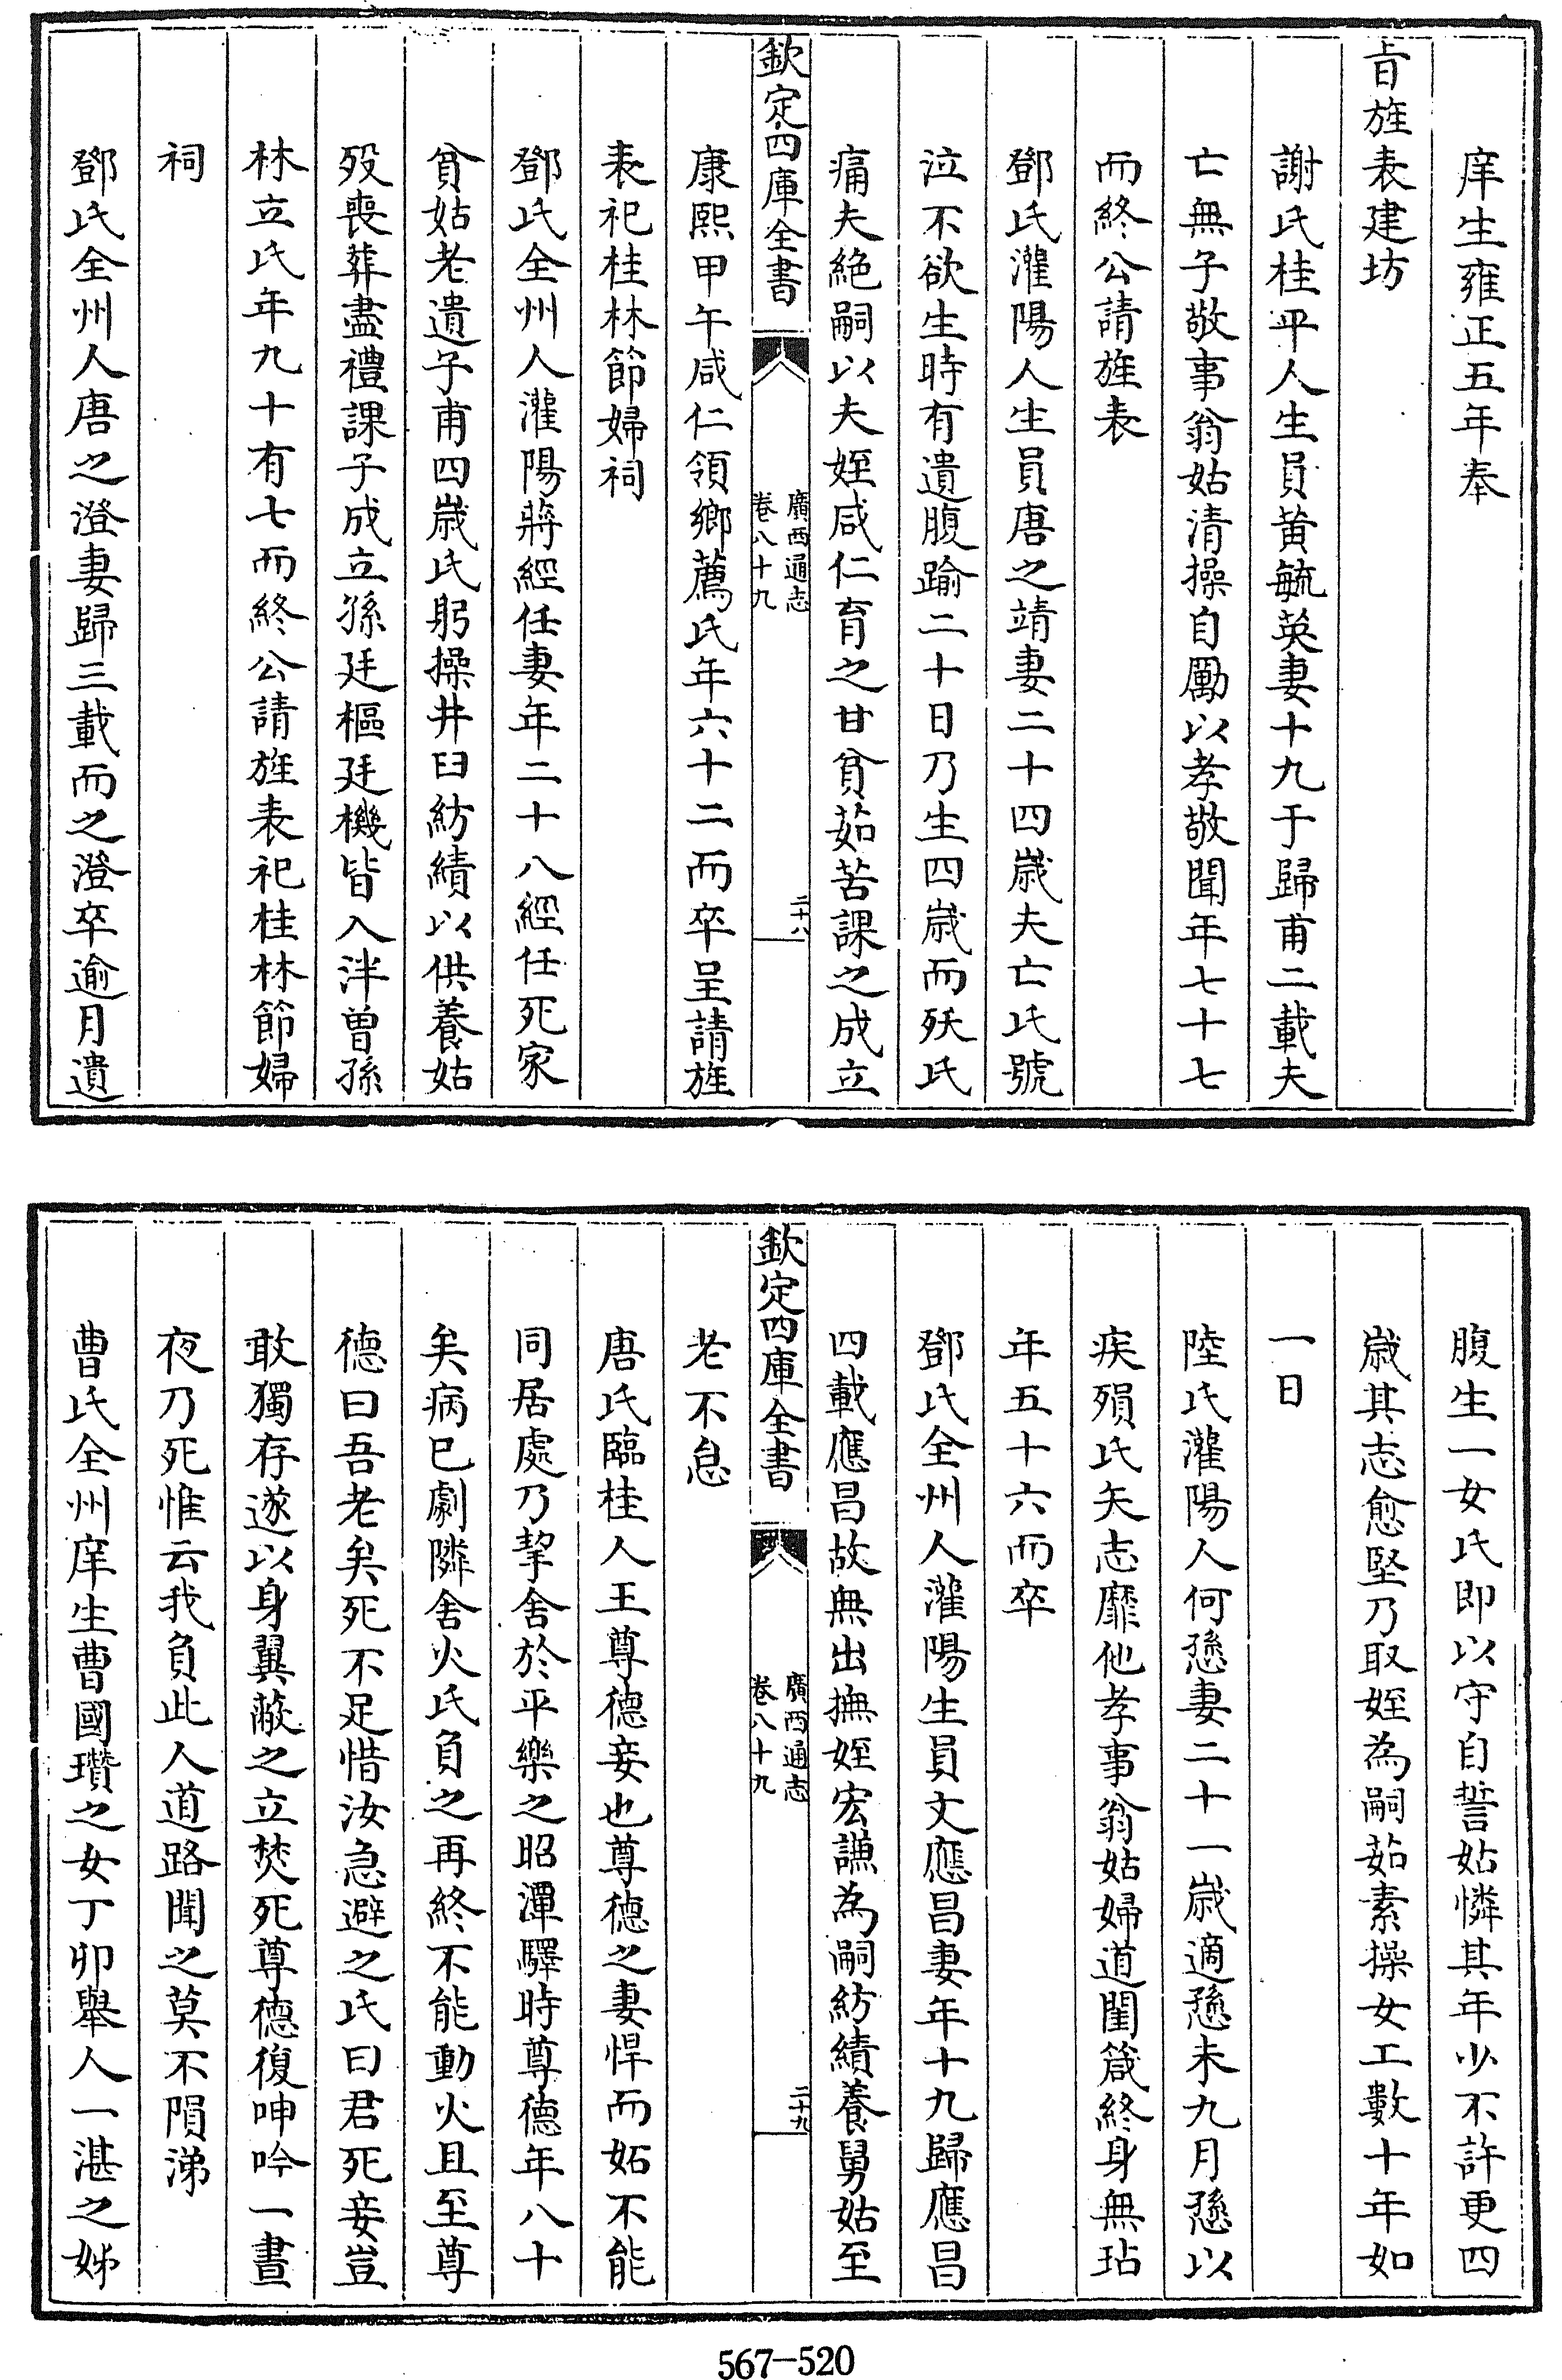 庠生雍正五年奉
旨旌表建坊
謝氏桂平人生員黄毓英妻十九于歸甫二載夫
亡無子敬事翁姑清操自勵以孝敬聞年七十七
而終公請旌表
鄧氏灌陽人生員唐之靖妻二十四歳夫亡氏號
泣不欲生時有遺腹踰二十日乃生四歳而殀氏
痛夫絶嗣以夫姪咸仁育之甘貧茹苦課之成立
欽定四庫全書
廣西通志
卷八十九
二十八
康熙甲午咸仁領鄉薦氏年六十二而卒呈請旌
表祀桂林節婦祠
鄧氏全州人灌陽蔣經任妻年二十八經任死家
貧姑老遺子甫四歳氏躬操井臼紡績以供養姑
殁喪葬盡禮課子成立孫廷樞廷機皆入泮曽孫
林立氏年九十有七而終公請旌表祀桂林節婦
祠
鄧氏全州人唐之澄妻歸三載而之澄卒逾月遺
腹生一女氏即以守自誓姑憐其年少不許更四
歳其志愈堅乃取姪為嗣茹素操女工數十年如
一日
陸氏灌陽人何懸妻二十一歳適懸未九月懸以
疾殞氏矢志靡他孝事翁姑婦道閨箴終身無玷
年五十六而卒
鄧氏全州人灌陽生員文應昌妻年十九歸應昌
四載應昌故無出撫姪宏謙為嗣紡績養舅姑至
欽定四庫全書
廣西通志
卷八十九
二十九
老不怠
唐氏臨桂人王尊德妾也尊德之妻悍而妬不能
同居處乃挈舍於平樂之昭潭驛時尊德年八十
矣病已劇隣舍火氏負之再終不能動火且至尊
德曰吾老矣死不足惜汝急避之氏曰君死妾豈
敢獨存遂以身翼蔽之立焚死尊德復呻吟一晝
夜乃死惟云我負此人道路聞之莫不隕涕
曹氏全州庠生曹國瓚之女丁卯舉人一湛之姊
567-520